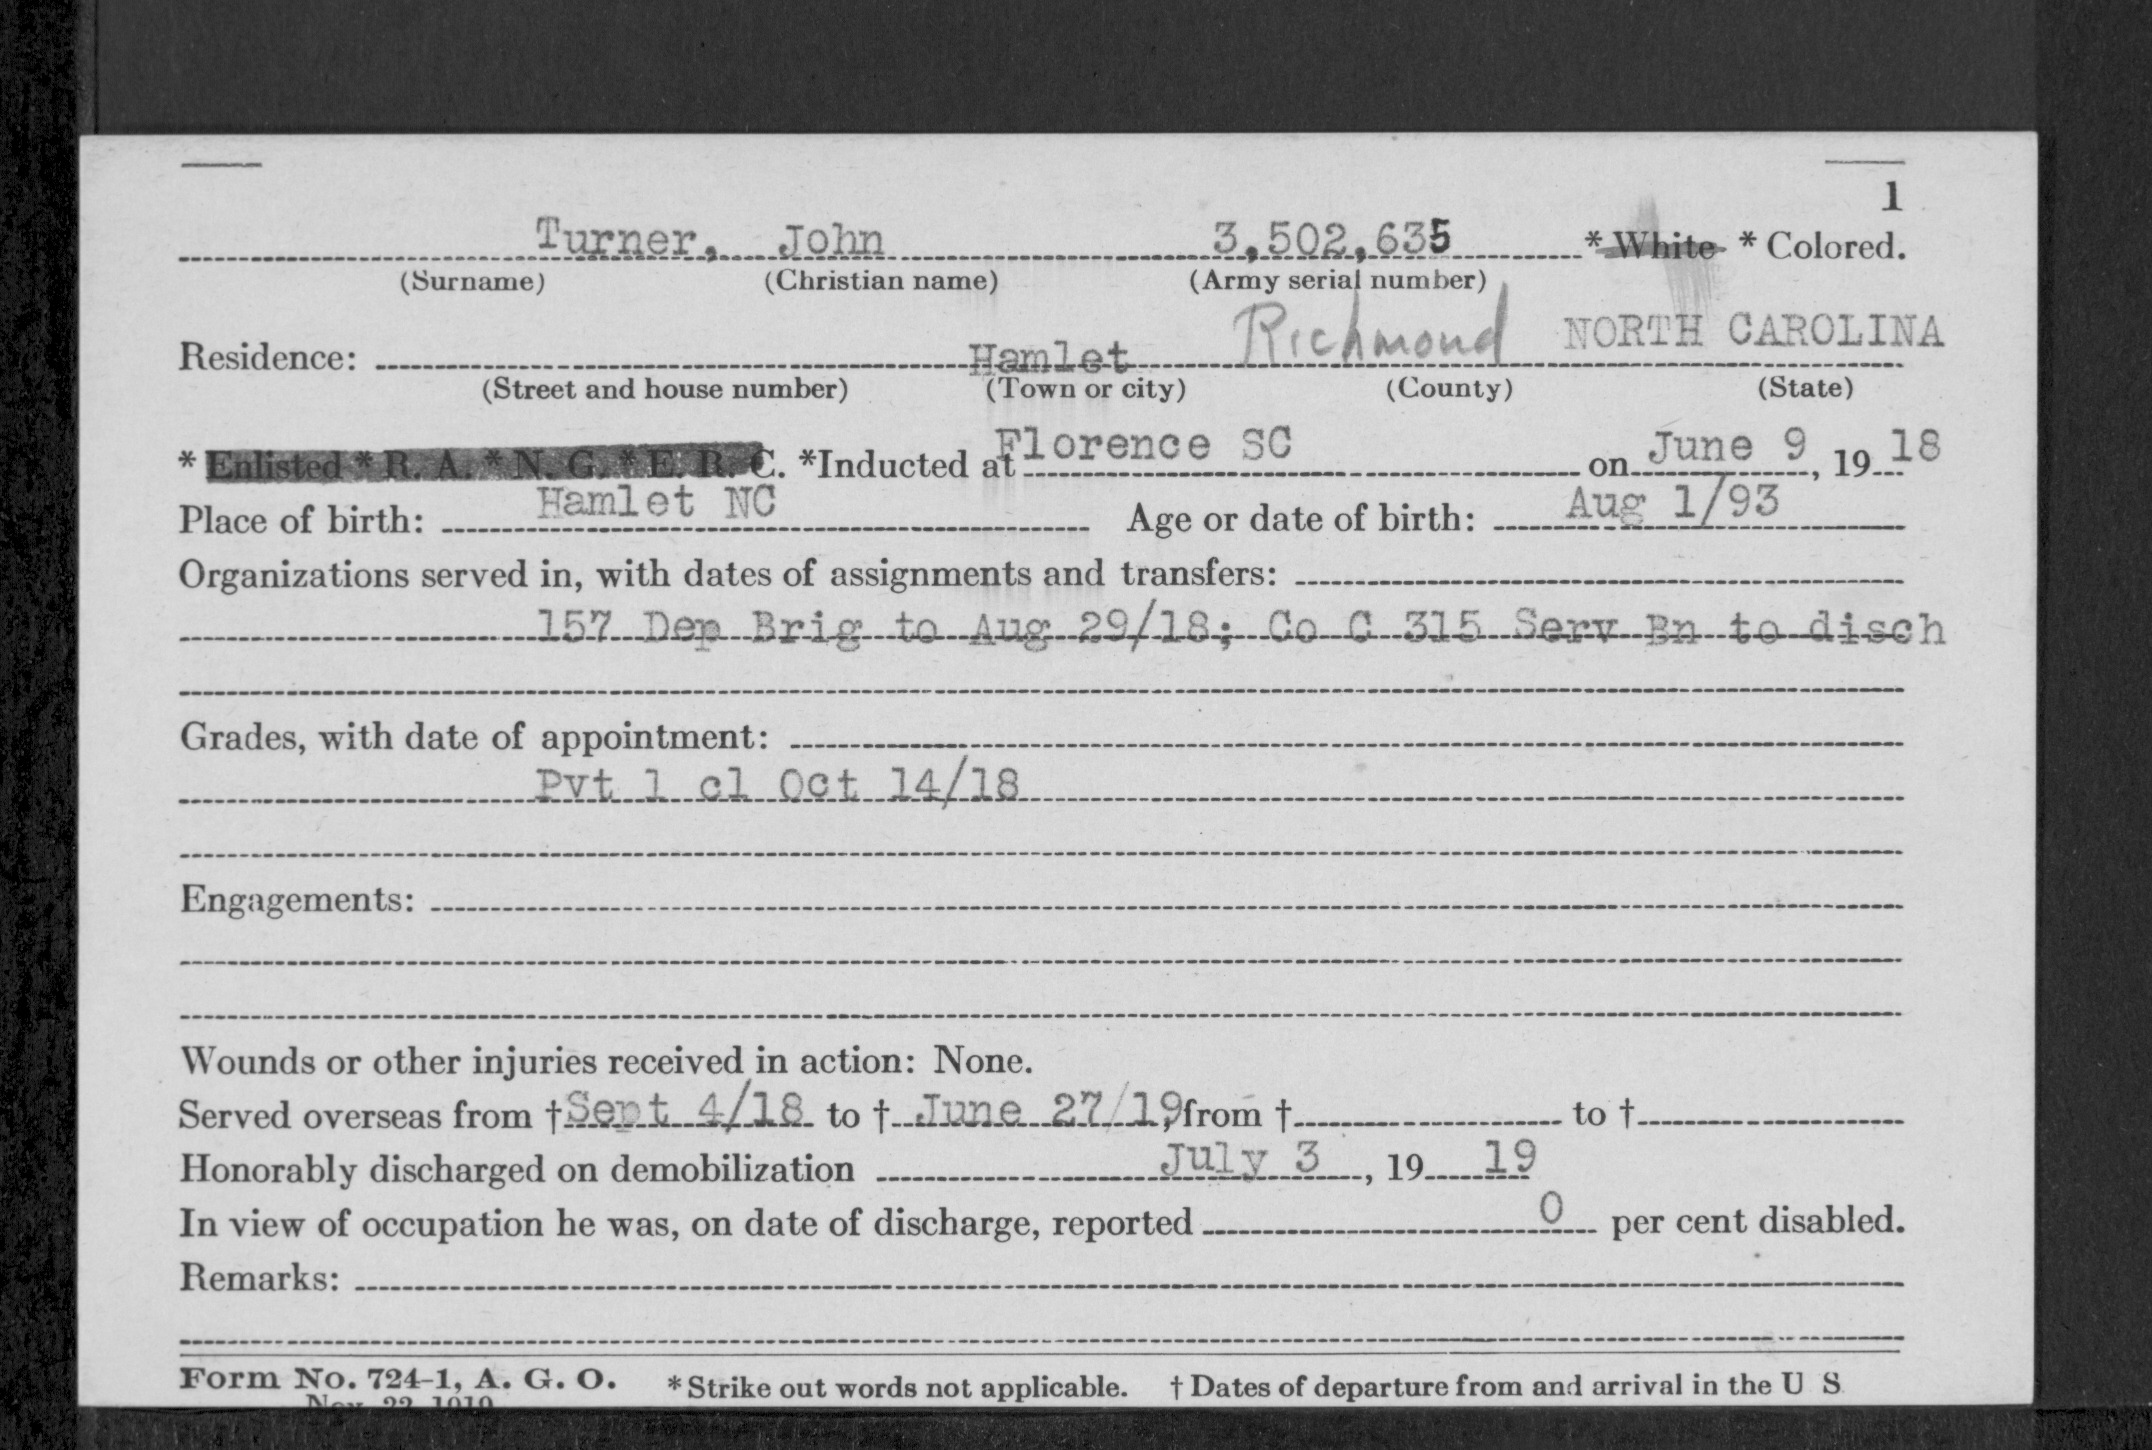 1
Turner, John 3,502,635 * White * Colored.
(Surname) (Christian name) (Army serial number)
Residence: Hamlet Richmond NORTH CAROLINA
(Street and house number) (Town or city) (County) (State)
* Enlisted * R. A. * N. G. * E. R. C. *Inducted at Florence SC on June 9, 19 18
Place of birth: Hamlet NC Age or date of birth: Aug 1/93
Organizations served in, with dates of assignments and transfers:
157 Dep Brig to Aug 29/18; Co C 315 Serv Bn to disch
Grades, with date of appointment:
Pvt 1 cl Oct 14/18
Engagements:
Wounds or other injuries received in action: None.
Served overseas from † Sept 4/18 to † June 27/19, from † to †
Honorably discharged on demobilization July 3, 19 19
In view of occupation he was, on date of discharge, reported 0 per cent disabled.
Remarks:
Form No. 724-1, A. G. O. * Strike out words not applicable. † Dates of departure from and arrival in the U S
Nov. 22 1919